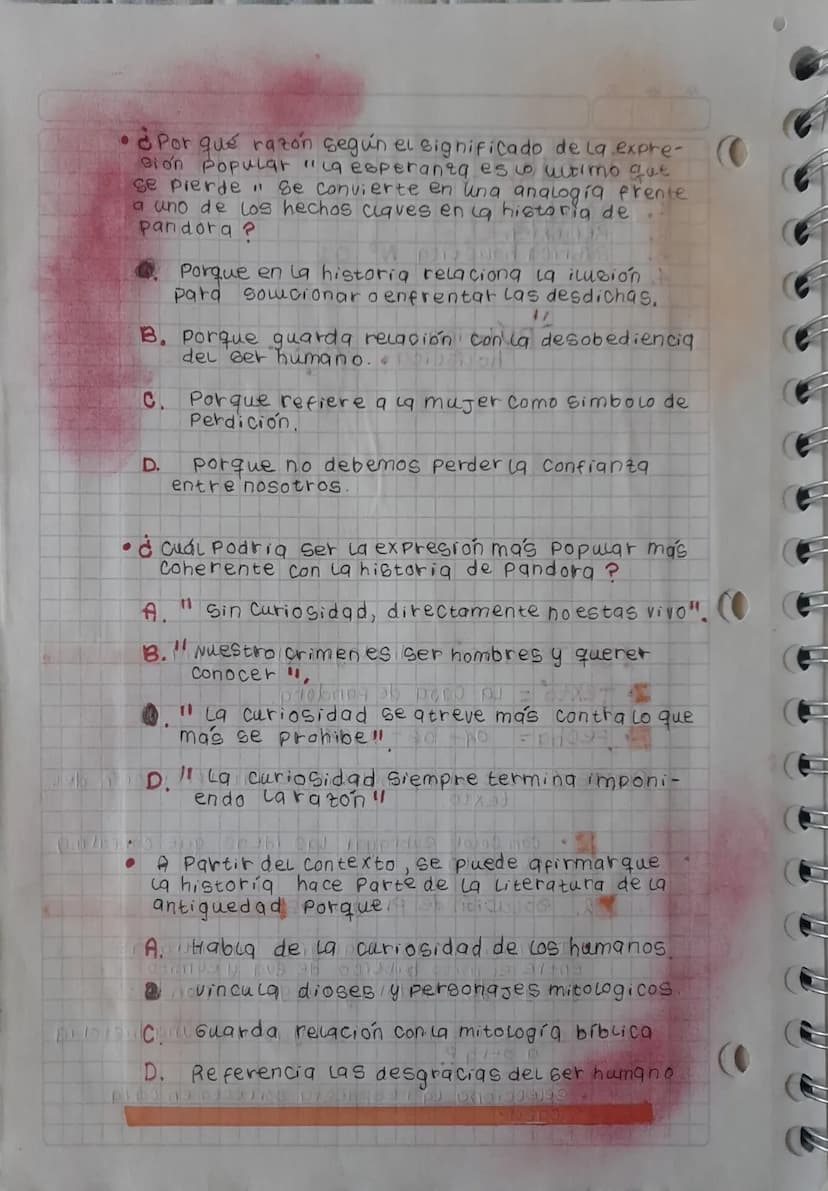 • ¿Por qué razón según el significado de la expre-
sión popular "la esperanza es lo ultimo que
se pierde" se convierte en una analogía frente
a uno de los hechos claves en la historia de
pandora?
. porque en la historia relaciona la ilusión
para solucionar o enfrentar las desdichas.
B. porque guarda relación con la desobediencia
del ser humano.
C. Porque refiere a la mujer como simbolo de
Perdición.
D. porque no debemos perder la confianza
entre nosotros.
• ¿Cuál Podria ser la expresión más popular más
coherente con la historia de pandora?
A. " sin curiosidad, directamente no estas vivo".
B. "Nuestro crimen es ser hombres y querer
conocer ",
. " La curiosidad se atreve más contra lo que
más se prohibe".
D. " La curiosidad siempre termina imponi-
endo la razón"
• A Partir del contexto, se puede afirmar que
la historia hace Parte de la literatura de la
antiguedad Porque.
A. Habla de la curiosidad de los humanos.
vincula dioses y personajes mitologicos.
C. Guarda relación con la mitología bíblica
D. Referencia las desgracias del ser humano